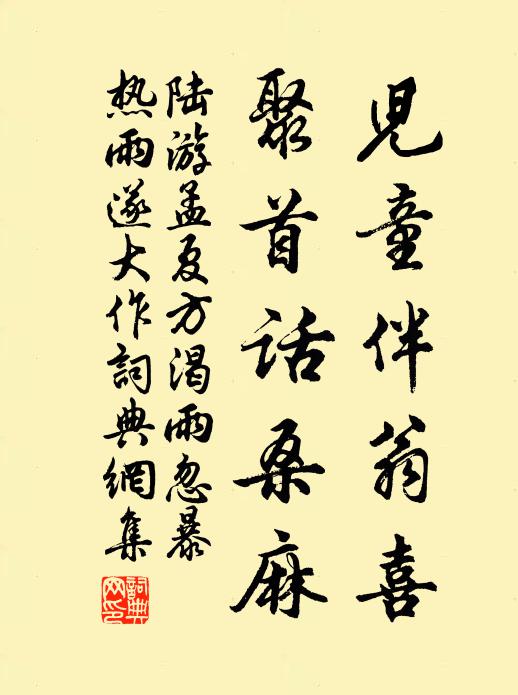 兒童伴翁喜
聚首话桑麻
陆游孟夏方渴雨忽暴
热雨遂大作詞典網集
詞典
网印